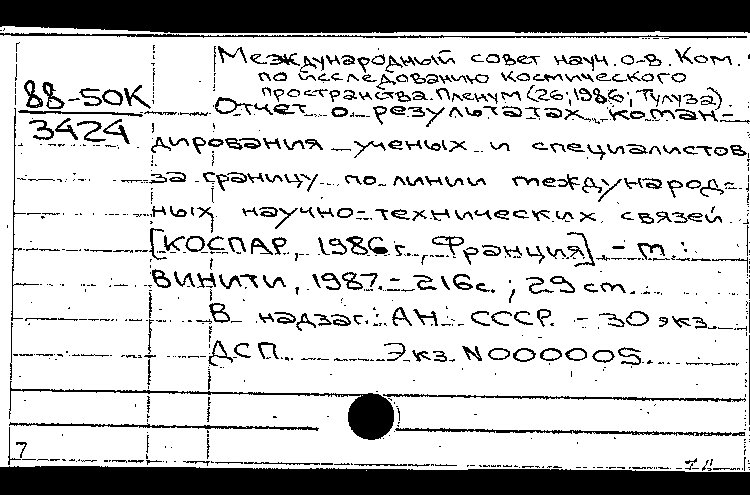 Международный совет науч. о-в. Ком.
по исследованию космического
пространства. Пленум (26; 1986; Тулуза).
88-50К
3424
Отчет о результатах коман-
дирования ученых и специалистов
за границу по линии международ-
ных научно-технических связей
[КОСПАР, 1986 г., Франция]. - М.:
ВИНИТИ, 1987. - 216 с.; 29 см.
В надзаг.: АН СССР. - 30 экз.
ДСП. Экз. N000005.
7